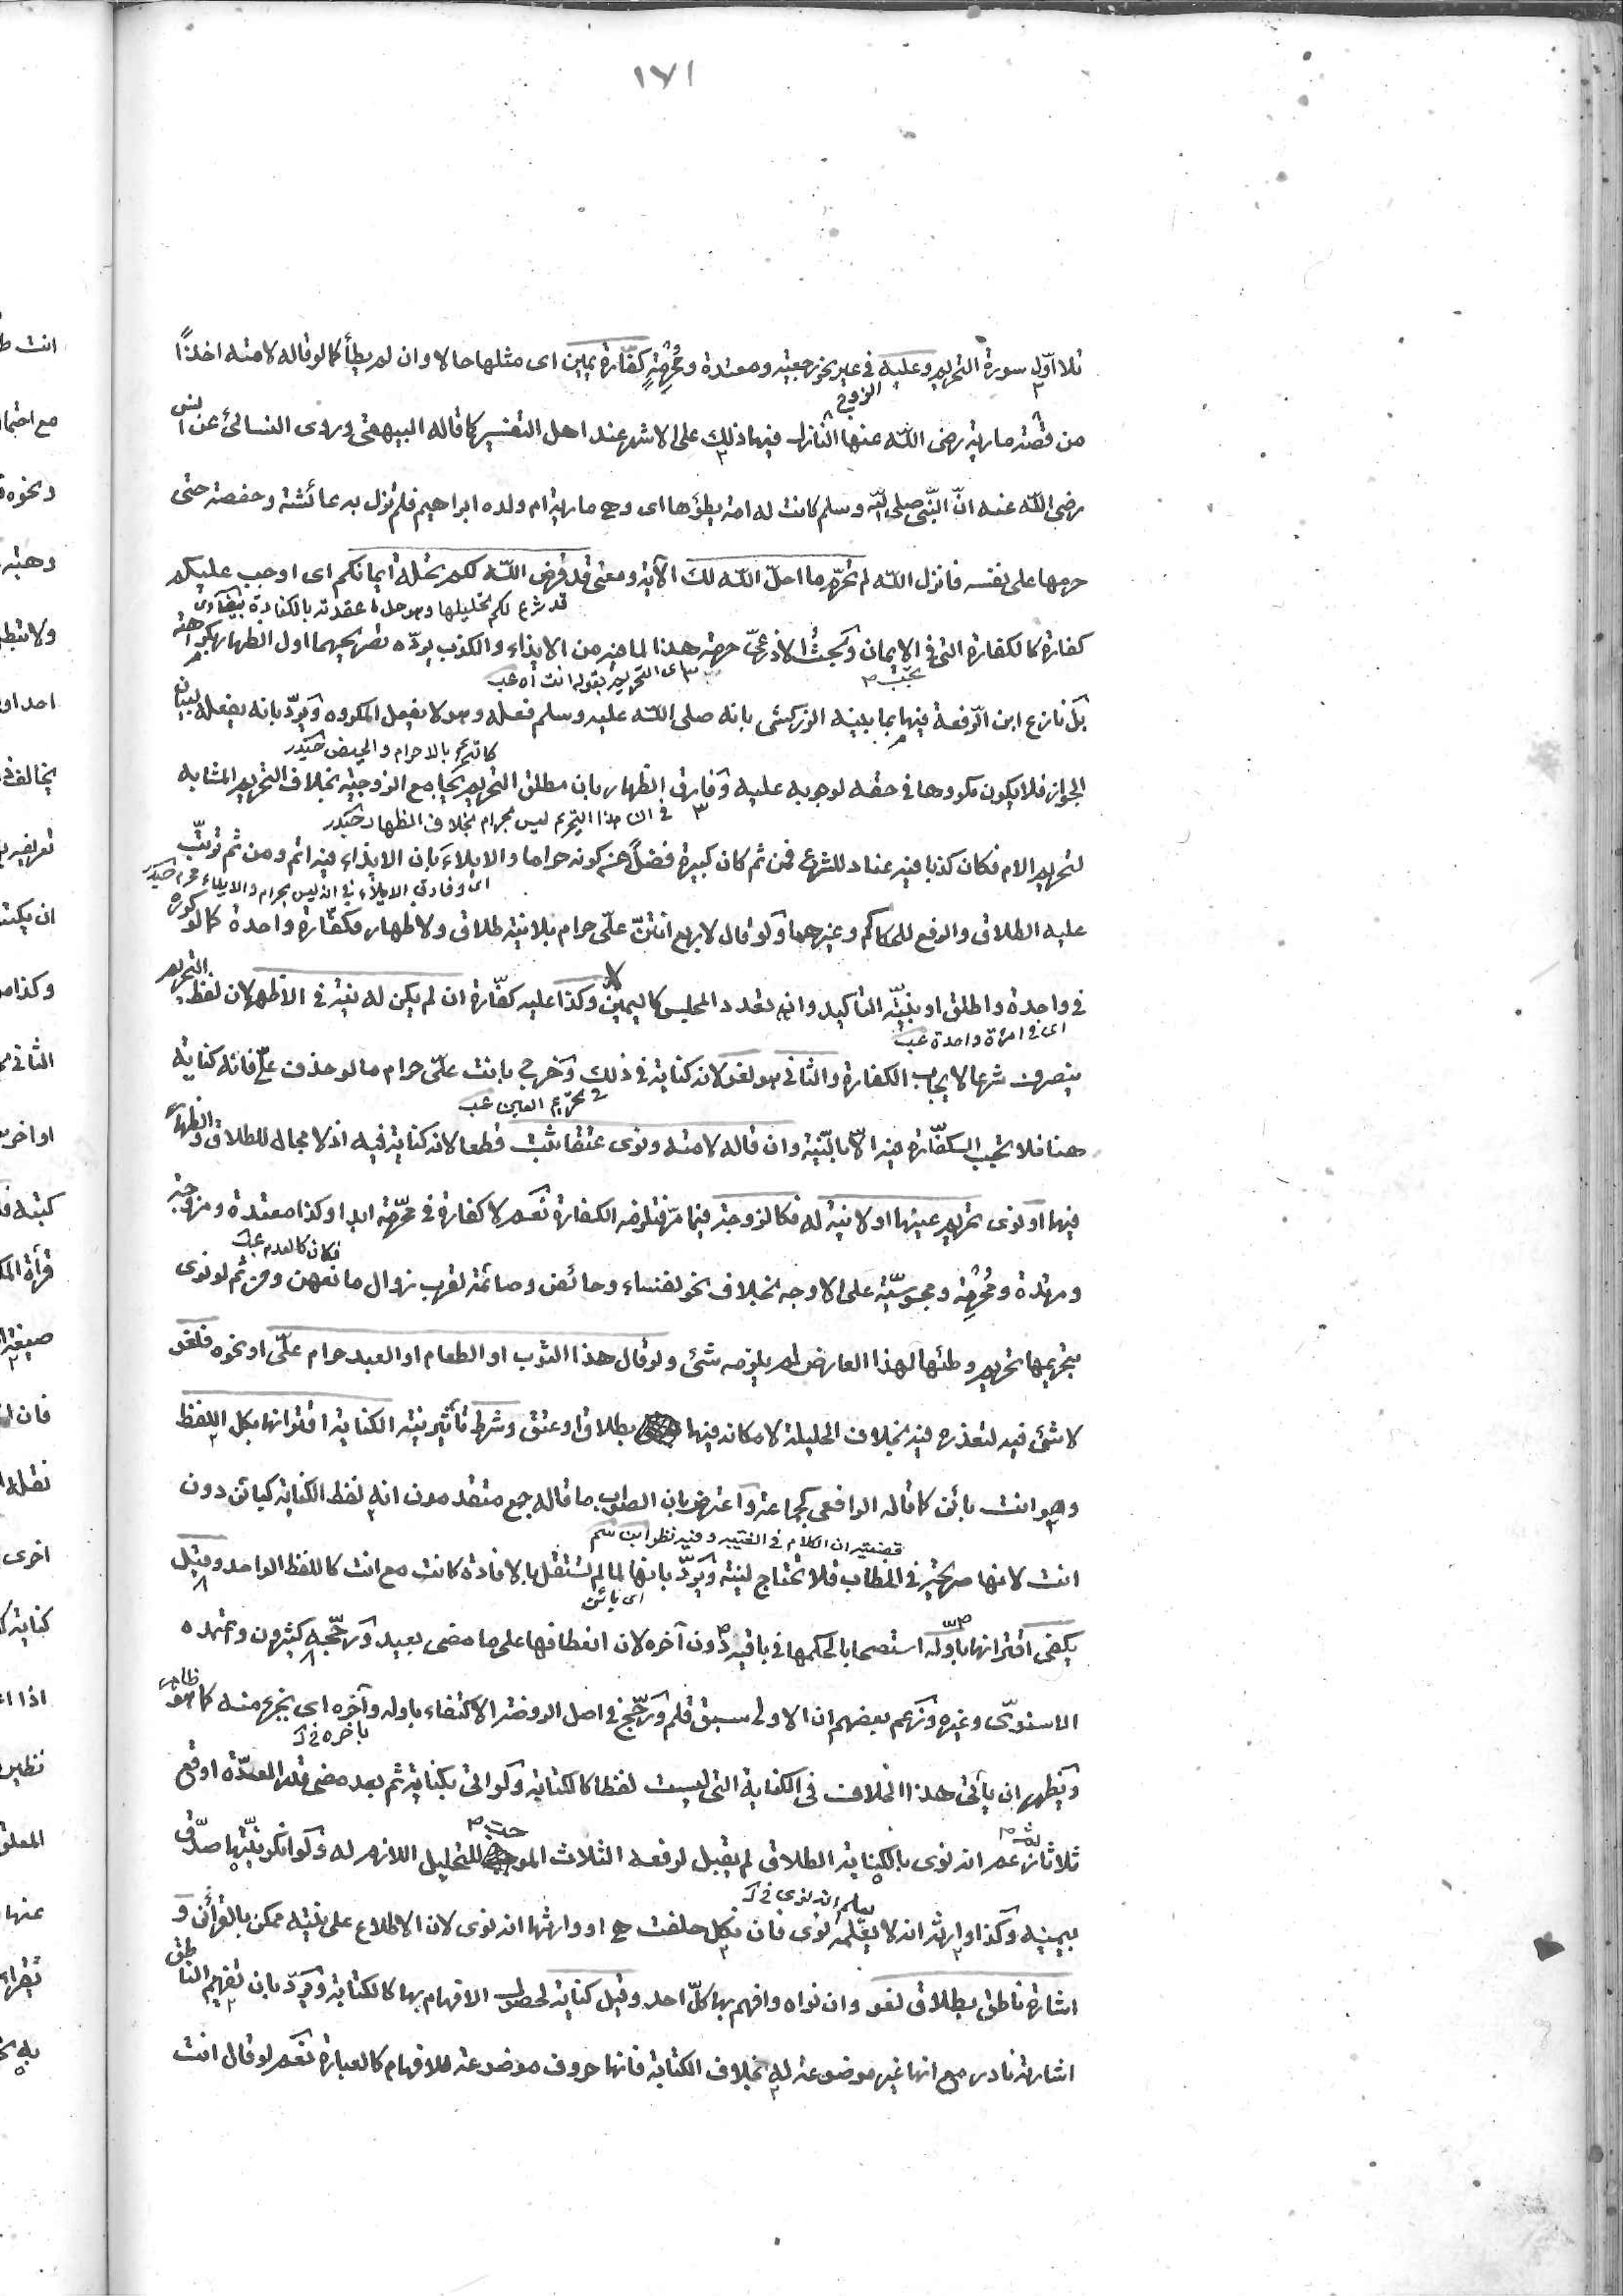 ١٧١
تلا اوّل سورة التحريم وعليه في غير نحو رجعية ومعتدة ومُحْرِمةٍ كفّارة يمين اى مثلها حالا وان لم يطأ كما لو قاله لامته اخذًا
الزوج
من قصّة مارية رضى اللّه عنها النازل فيها ذلك على الاشهر عند اهل التفسير كما قاله البيهقى وروى النسائى عن انس
رضى اللّه عنه انّ النّبى صلى اللّه وسلم كانت له امة يطؤها اى وهى مارية ام ولده ابراهيم فلم تزل به عائشة وحفصة حتى
حرمها على نفسه فانزل اللّه لم تحرّم ما احلّ اللّه لك الآية ومعنى قد فرض اللّه لكم تحلة ايمانكم اى اوجب عليكم
قد شرع لكم تحليلها وهو حل ما عقدته بالكفارة بيضاوى
كفارة كالكفارة التى فى الايمان وبحث الاذرعىّ حرمة هذا لما فيه من الايذاء والكذب يردّه تصريحهما اول الظهار بكراهته
اى التحريم بقوله انت اه عب
بل نازع ابن الرّفعة فيها بما بينه الزركشى بانه صلى اللّه عليه وسلم فعله وهو لا يفعل المكروه ويردّ بانه يفعله لبيان
كالتحريم بالاحرام والحيض حيدر
الجواز فلا يكون مكروها فى حقه لوجوبه عليه وفارق الظهار بان مطلق التحريم يجامع الزوجية بخلاف التحريم المشابه
فى ان هذا التحريم ليس بحرام بخلاف الظهار حيدر
لتحريم الام فكان كذبا فيه عناد للشرع فمن ثم كان كبيرة فضلًا عن كونه حراما والايلاء بان الايذاء فيه اتم ومن ثم ترتّب
اى وفارق الايلاء فى انه ليس بحرام والايلاء محرم حيدر
عليه الطلاق والرفع للحاكم وغيرهما ولو قال لاربع انتنّ علىّ حرام بلا نية طلاق ولا ظهار فكفّارة واحدة كما لو كرره
فى واحدة واطلق او بنيّة التأكيد وان تعدد المجلس كاليمين وكذا عليه كفّارة ان لم يكن له نية فى الاظهر لان لفظ التحريم
اى فى امرأة واحدة عب
ينصرف شرعا لايجاب الكفارة والثانى هو لغو لانه كناية فى ذلك وخرج بانت علىّ حرام ما لو حذف علىّ فانه كناية
فى تحريم العين عب
هنا فلا تجب الكفّارة فيه الّا بالنّية وان قاله لامته ونوى عتقا ثبت قطعا لانه كناية فيه اذ لا مجال للطلاق والظهار
فيها او نوى تحريم عينها او لا نية له فكالزوجة فيما مرّ فتلزمه الكفارة نعم لا كفارة فى محرّمة ابدا وكذا معتدة ومزوجة
فكان كالعدم عب
ومرتدة ومُحْرِمة ومجوسيّة على الاوجه بخلاف نحو نفساء وحائض وصائمة لقرب زوال مانعهن ومن ثم لو نوى
بتحريمها تحريم وطئها لهذا العارض لم يلزمه شئ ولو قال هذا الثوب او الطعام او العبد حرام علىّ او نحوه فلغو
لا شئ فيه لتعذره فيه بخلاف الحليلة لامكانه فيها بطلاق او عتق وشرط تأثير نية الكناية اقترانها بكل اللفظ
وهو انت بائن كما قاله الرافعى كجماعة واعترض بان الصواب ما قاله جمع متقدمون انه لفظ الكناية كبائن دون
قضيته ان الكلام فى الغيبة وفيه نظر ابن سم
انت لانها صريحة فى الخطاب فلا تحتاج لنية ويردّ بانها لما لم تستقل بالافادة كانت مع انت كاللفظ الواحد وقيل
اى بائن
يكفى اقترانها باوّله استصحابا لحكمها فى باقيه دون آخره لان انعطافها على ما مضى بعيد ورجّحه كثيرون واعتمده
الاسنوىّ وغيره وزعم بعضهم ان الاولى سبق قلم ورجّح فى اصل الروضة الاكتفاء باوله وآخره اى بجزء منه كما هو ظاهر
بآخره فى آ
ويظهر ان يأتى هذا الخلاف فى الكناية التى ليست لفظا كالكتابة ولو اتى بكناية ثم بعد مضى قدر العدّة اوقع
ثلاثا زعم انه نوى بالكناية الطلاق لم يقبل لرفعه الثلاث الموجب للتحليل اللازم له ولو انكر نيّتها صدّق
يعلم انه نوى فى آ
بيمينه وكذا وارثه انه لا يعلمه نوى فان نكل حلفت هى او وارثها انه نوى لان الاطلاع على نيته ممكن بالقرائن و
اشارة ناطق بطلاق لغو وان نواه وافهم بها كلّ احد وقيل كناية لحصول الافهام بها كالكتابة ويردّ بان تفهيم الناطق
اشارته نادر مع انها غير موضوعة له بخلاف الكتابة فانها حروف موضوعة للافهام كالعبارة نعم لو قال انت